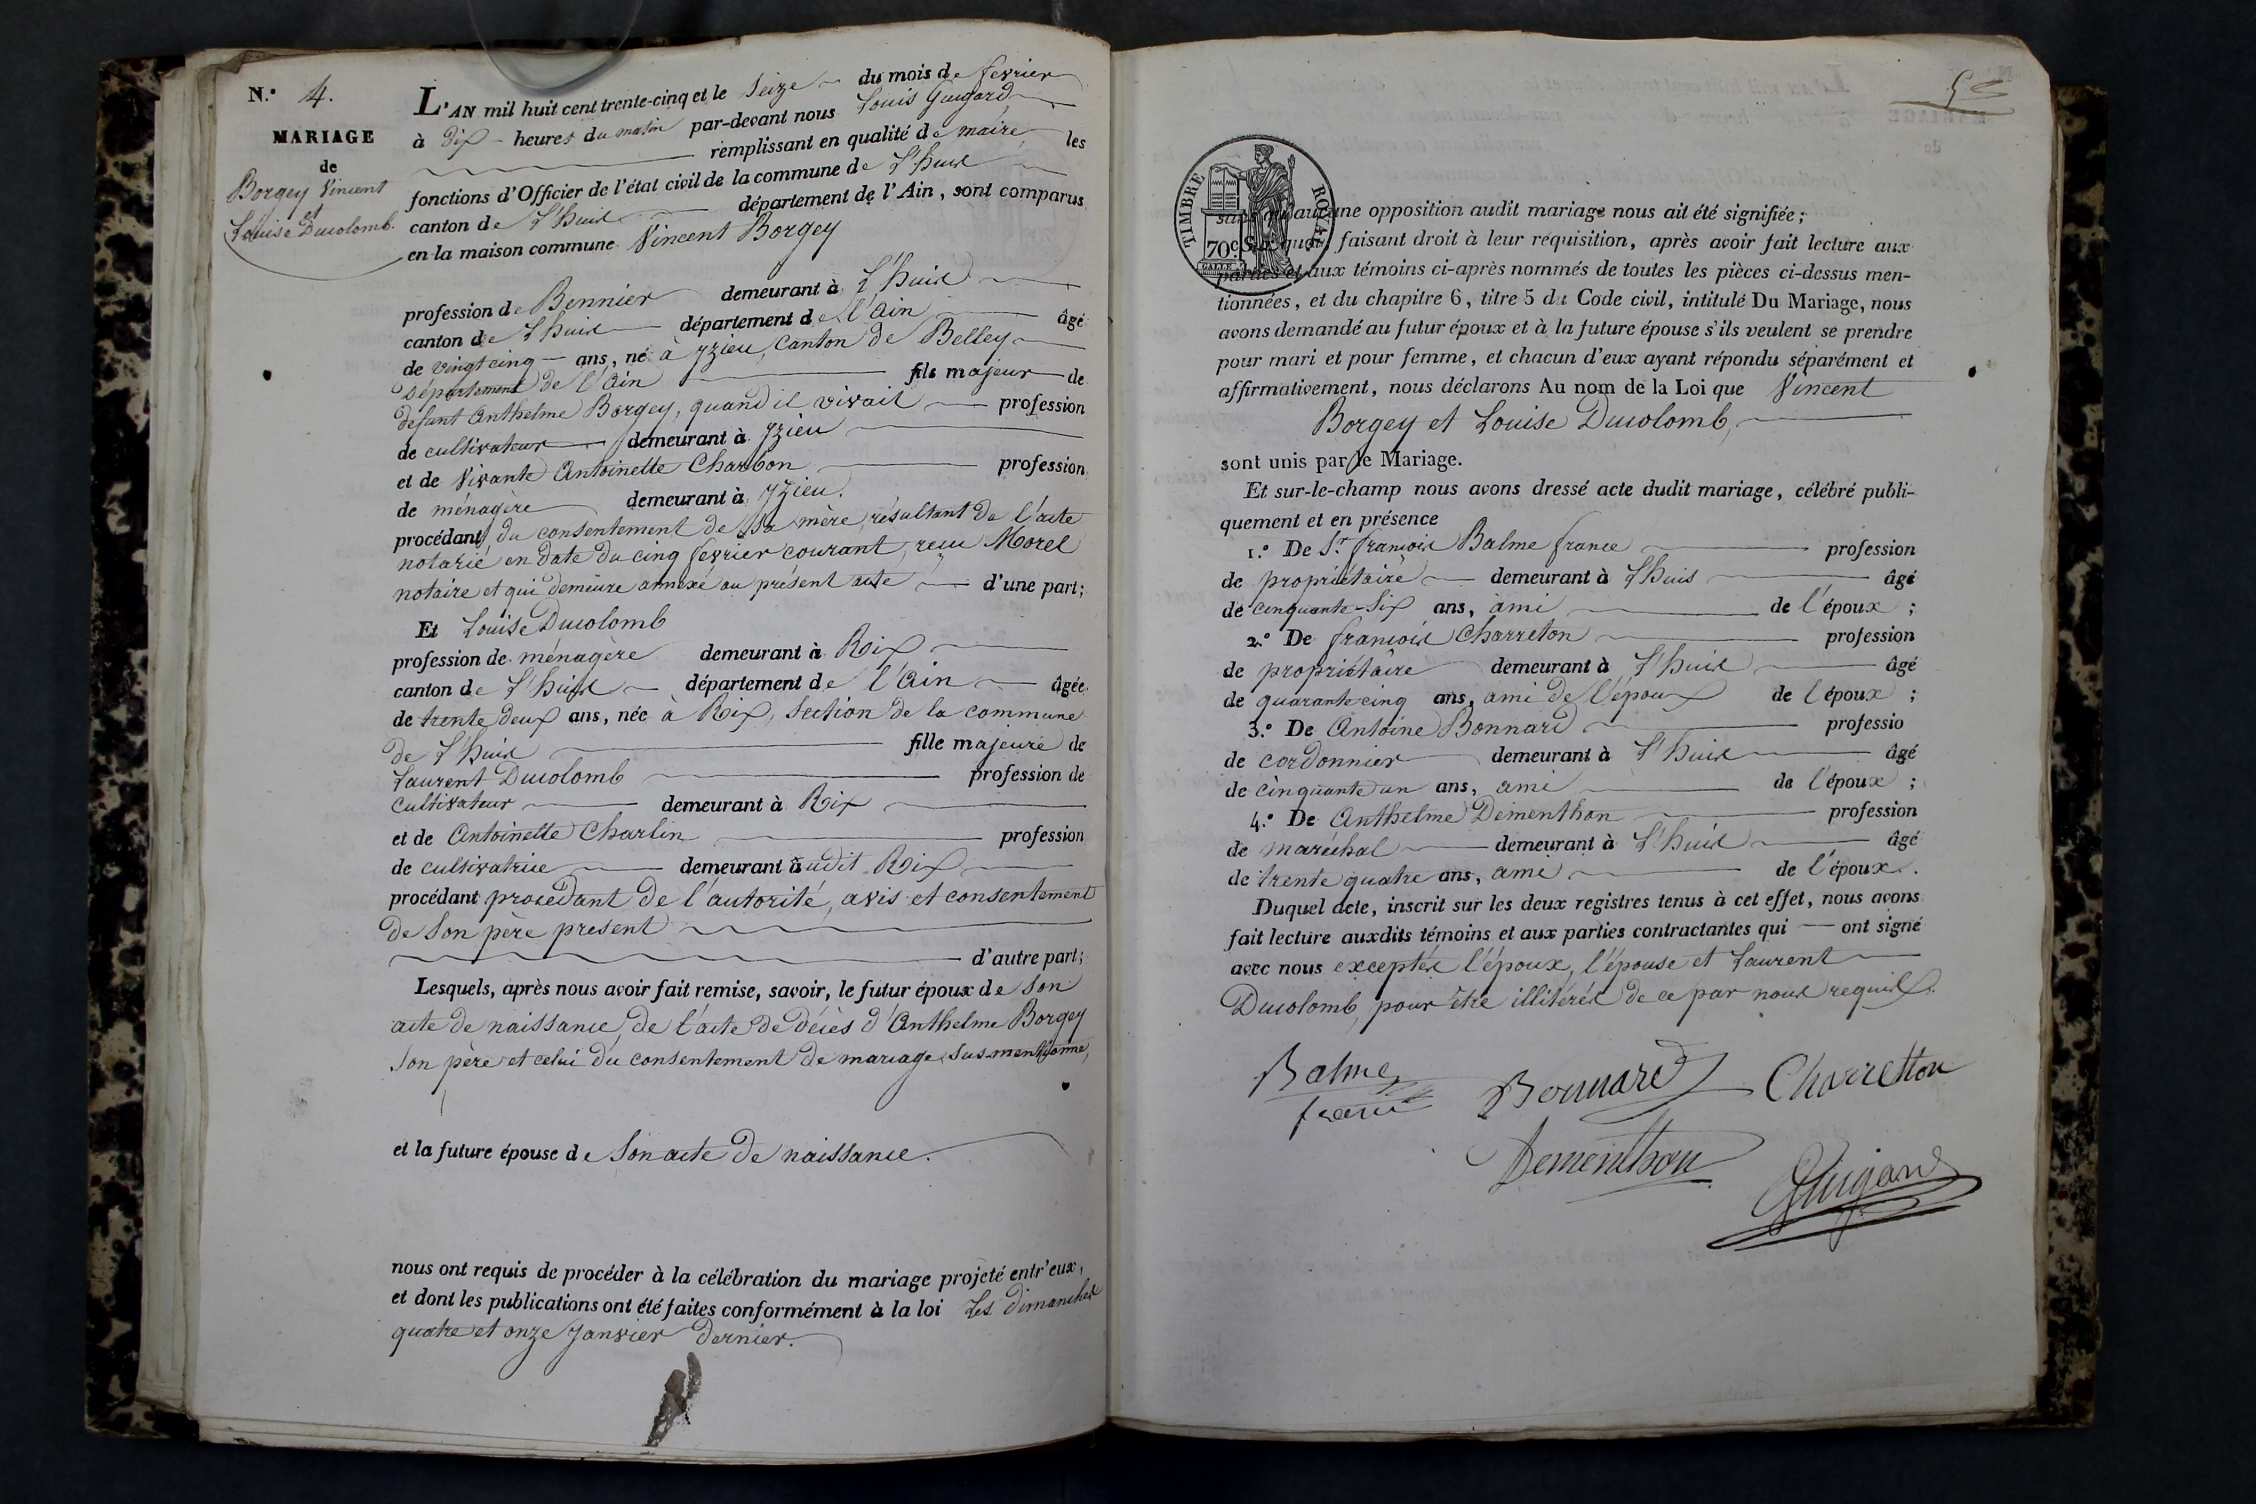 N.º 4.
MARIAGE
de
Borgey Vincent
et
Louise Ducolomb.
L'AN mil huit cent trente-cinq et le Seize du mois de fevrier
à Dix heures du matin par-devant nous Louis Guigard
remplissant en qualité de maire les
fonctions d'Officier de l'état civil de la commune de L'huis
canton de L'huis département de l'Ain, sont comparus
en la maison commune Vincent Borgey
profession de Bennier demeurant à L'huis
canton de L'huis département de l'Ain âgé
de vingt cinq ans, né à Yzieu, Canton de Belley
département de l'Ain fils majeur de
défunt Anthelme Borgey, quand il vivait profession
de cultivateur demeurant à Yzieu
et de vivante Antoinette Charbon profession
de ménagère demeurant à Yzieu.
procédant du consentement de sa mère, résultant de l'acte
notarié en date du cinq fevrier courant, reçu Morel
notaire et qui demeure annexé au présent acte d'une part;
Et Louise Ducolomb
profession de ménagère demeurant à Rix
canton de L'huis département de l'Ain âgée
de trente deux ans, née à Rix, Section de la commune
de L'huis fille majeure de
Laurent Ducolomb profession de
Cultivateur demeurant à Rix
et de Antoinette Charlin profession
de cultivatrice demeurant audit Rix
procédant procedant de l'autorité, avis et consentement
de Son père présent
d'autre part;
Lesquels, après nous avoir fait remise, savoir, le futur époux de Son
acte de naissance, de l'acte de décès d'Anthelme Borgey
Son père et celui du consentement de mariage susmentionné,
et la future épouse de Son acte de naissance.
nous ont requis de procéder à la célébration du mariage projeté entr'eux,
et dont les publications ont été faites conformément à la loi Les dimanches
quatre et onze Janvier dernier.
5
TIMBRE ROYAL
70 c
sans qu'aucune opposition audit mariage nous ait été signifiée;
Sur quoi, faisant droit à leur réquisition, après avoir fait lecture aux
parties et aux témoins ci-après nommés de toutes les pièces ci-dessus men-
tionnées, et du chapitre 6, titre 5 du Code civil, intitulé Du Mariage, nous
avons demandé au futur époux et à la future épouse s'ils veulent se prendre
pour mari et pour femme, et chacun d'eux ayant répondu séparément et
affirmativement, nous déclarons Au nom de la Loi que Vincent
Borgey et Louise Ducolomb,
sont unis par le Mariage.
Et sur-le-champ nous avons dressé acte dudit mariage, célébré publi-
quement et en présence
1.º De Sr. françois Balme france profession
de propriétaire demeurant à L'huis âgé
de cinquante-six ans, ami de l'époux;
2.º De françois Charreton profession
de propriétaire demeurant à L'huis âgé
de quarante cinq ans, ami de l'époux de l'époux;
3.º De Antoine Bonnard professio
de cordonnier demeurant à L'huis âgé
de cinquante un ans, ami de l'époux;
4.º De Anthelme Dementhon profession
de maréchal demeurant à L'huis âgé
de trente quatre ans, ami de l'époux.
Duquel acte, inscrit sur les deux registres tenus à cet effet, nous avons
fait lecture auxdits témoins et aux parties contractantes qui ont signé
avec nous exceptés l'époux, l'épouse et Laurent
Ducolomb, pour être illitérés de ce par nous requis.
Balme
france
Bonnard
Charretton
Dementhon
Guigard